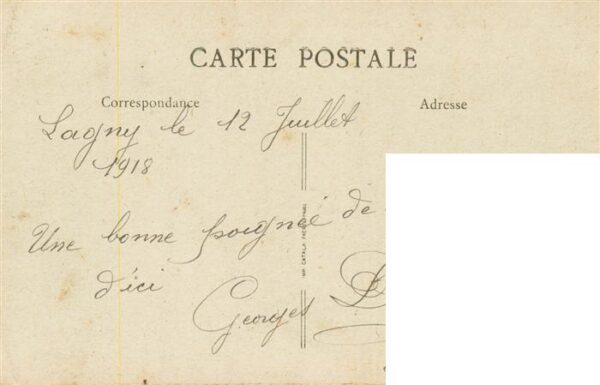 CARTE POSTALE
Correspondance
Adresse
Lagny le 12 Juillet
1918
Une bonne poignée de
d'ici
Georges D
IMP. CATALA FRÈRES, PARIS